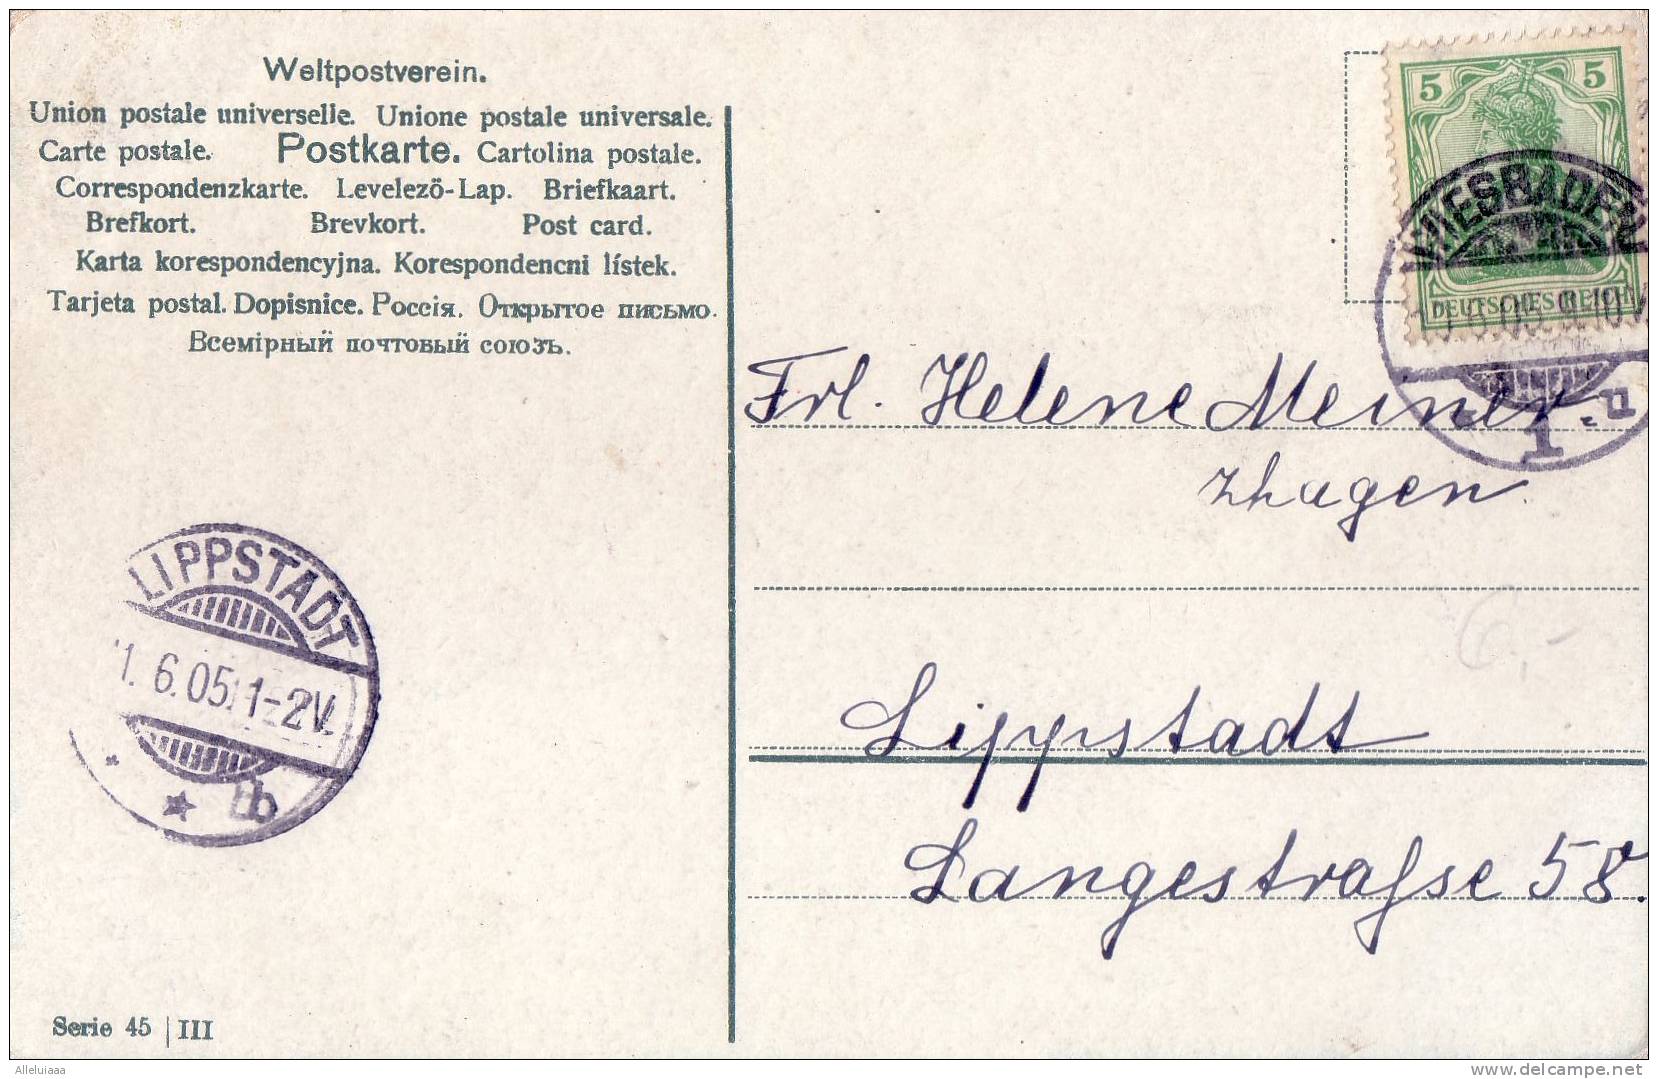 Weltpostverein.
Union postale universelle. Unione postale universale.
Carte postale. Postkarte. Cartolina postale.
Correspondenzkarte. Levelező-Lap. Briefkaart.
Brefkort. Brevkort. Post card.
Karta korespondencyjna. Korespondencni lístek.
Tarjeta postal. Dopisnice. Россія. Открытое письмо.
Всемірный почтовый союзъ.
5 5
DEUTSCHES REICH
WIESBADEN
1
Frl. Helene Meiner
zhagen
6,-
Lippstadt
Langestraſse 58.
LIPPSTADT
1. 6. 05. 1-2V.
* bb
Serie 45 | III
Alleluiaaa
www.delcampe.net